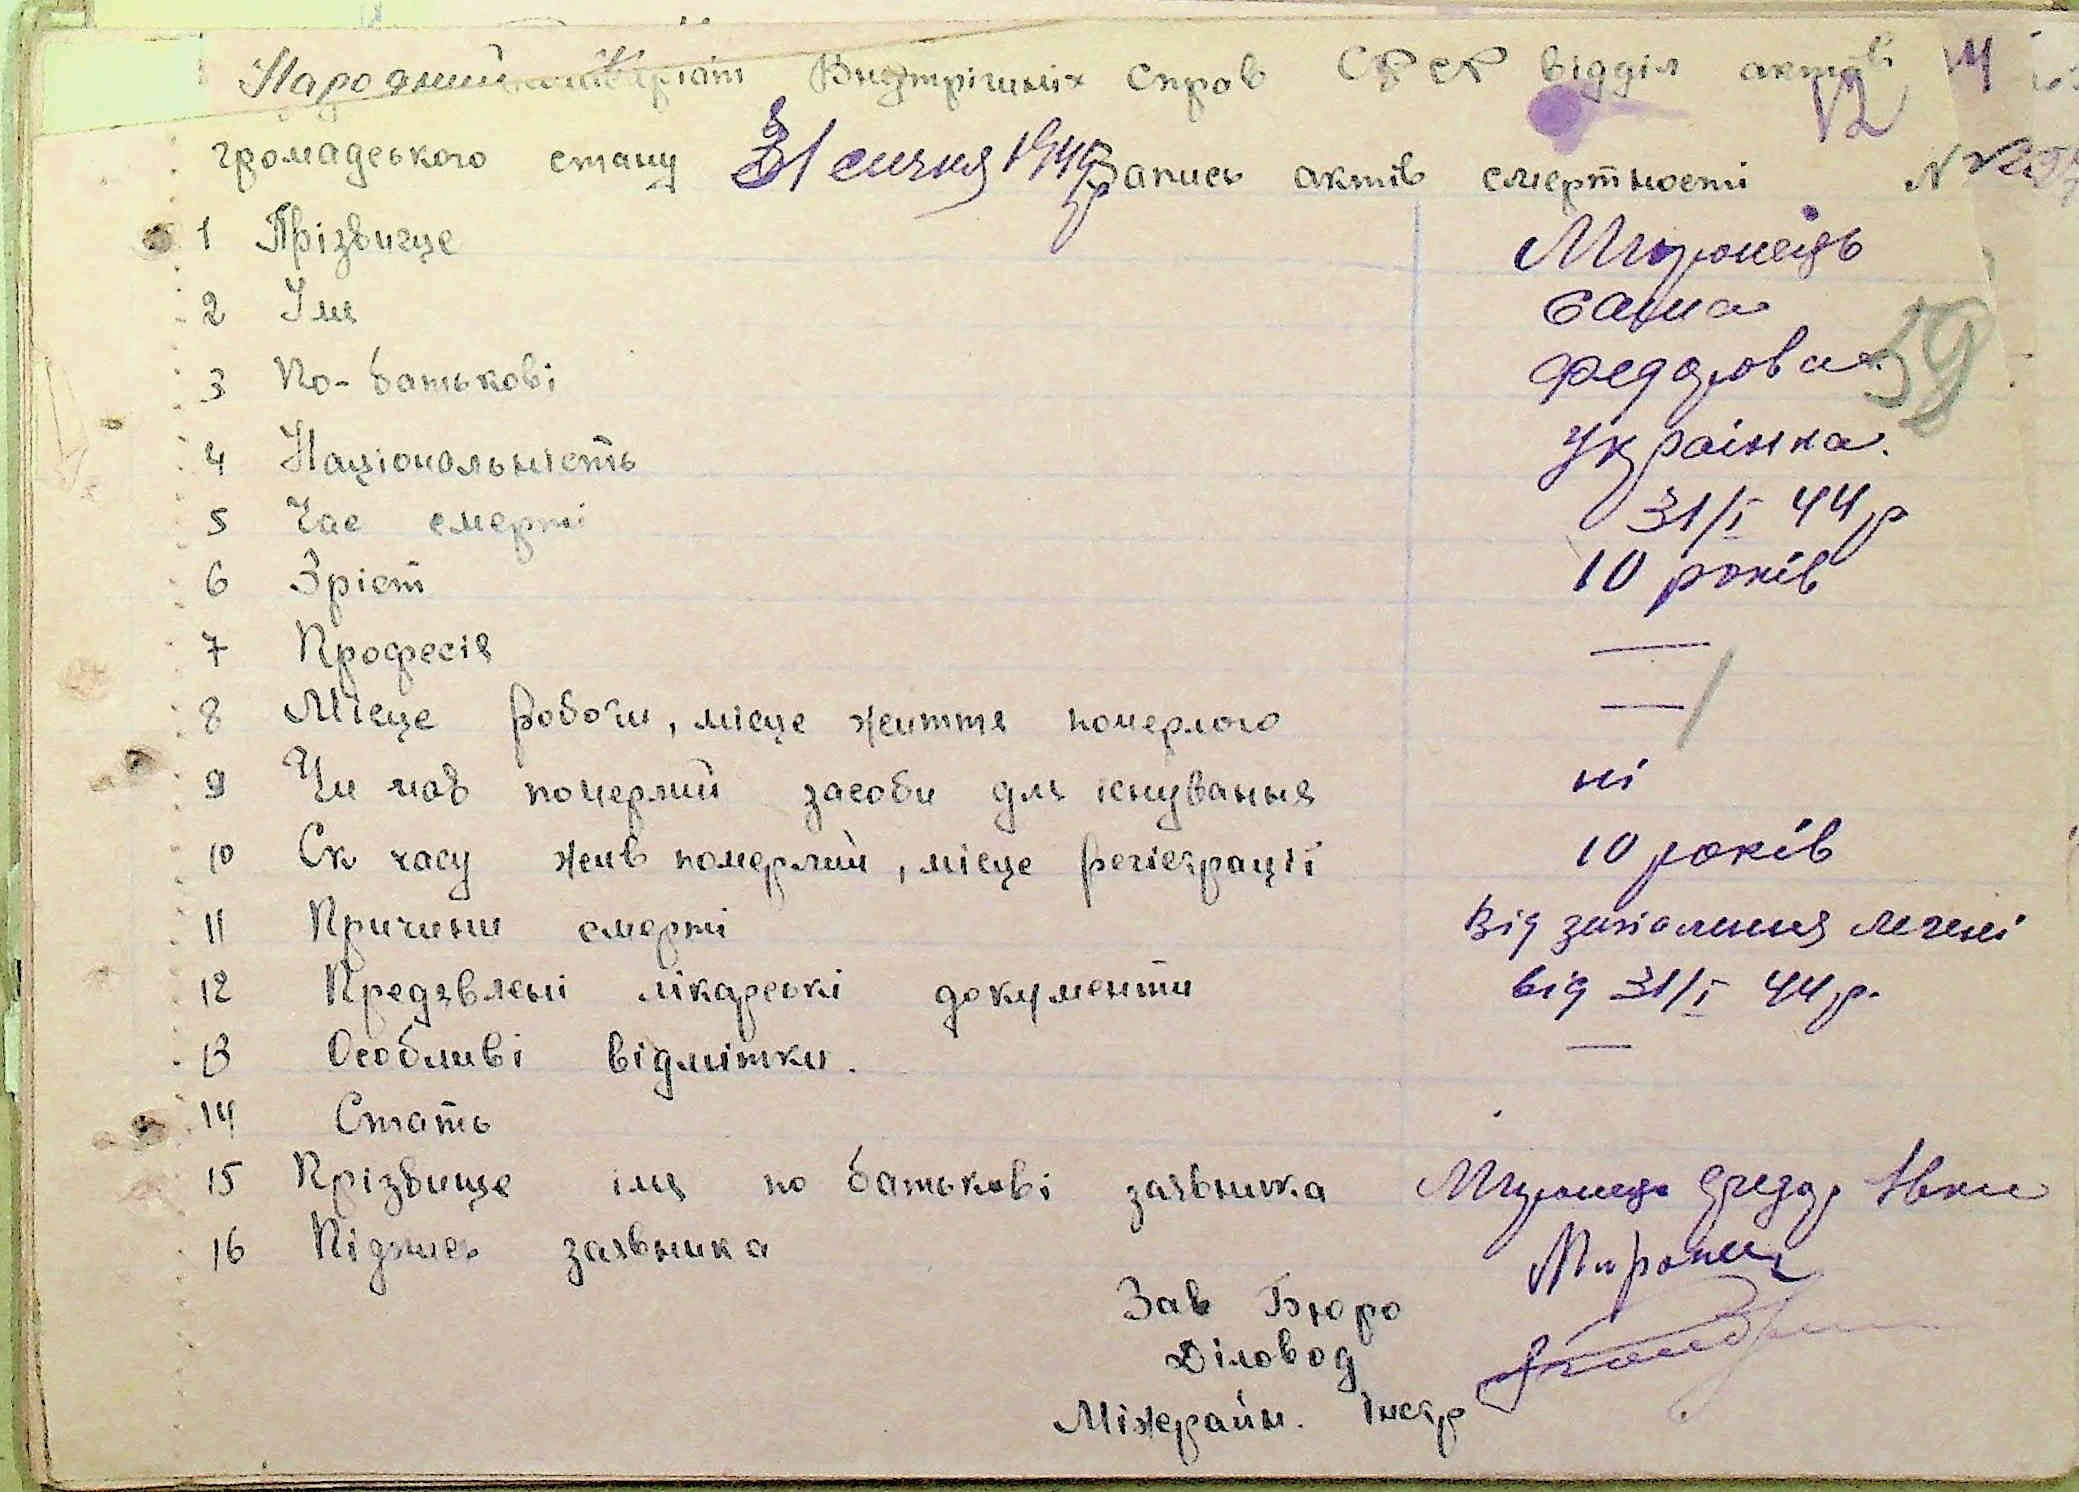 Народний Комісаріат Внутрішніх Справ СРСР відділ актів
12
громадського стану 31 січня 1944р Запись актів смертности N
1 Прізвище Миронець
2 Імя
3 По-батькові Федоровна
59
4 Національність Українка.
5 Час смерті 31/I 44р
6 Зріст 10 років
7 Професія —
8 Місце роботи, місце життя померлого —
9 Чи мав померлий засоби для існування ні
10 Ск часу жив померлий, місце регістрації 10 років
11 Причини смерті Від запалення легені
12 Предявлені лікарські документи від 31/I 44р.
13 Особливі відмітки. —
14 Стать
15 Прізвище імя по батькові заявника Миронець Федор
16 Підпись заявника Миронец
Зав Бюро
Діловод
Міжрайн. Інстр